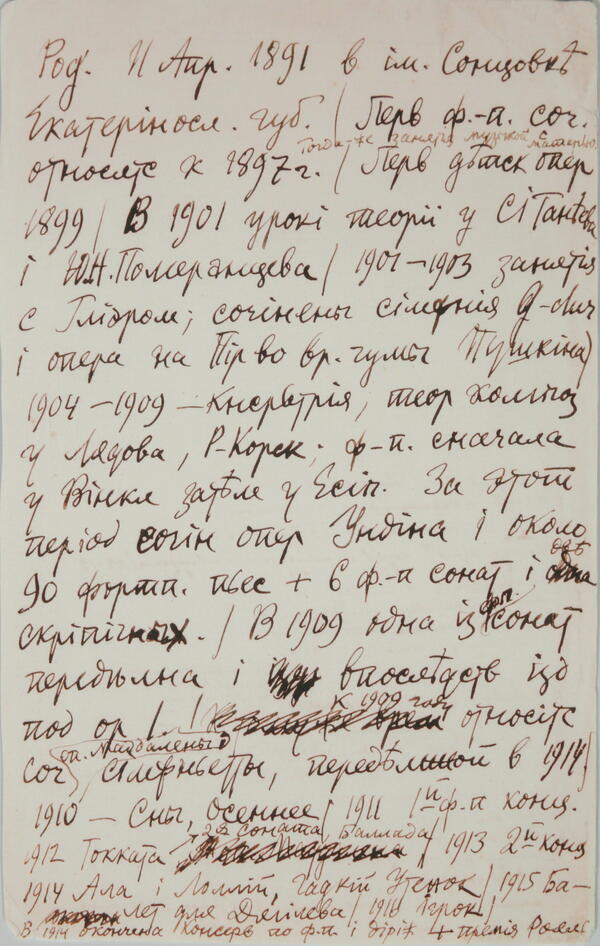 Род. 11 Апр. 1891 в ім. Сонцовкѣ
Екатеріносл. губ. / Перв ф.-п. соч.
Тогда же занятія музыкой с матерью.
относятс к 1897 г. / Перв дѣтск опер
1899 / В 1901 урокі теоріі у Сі Танѣева
і Ю.Н. Померанцева / 1901–1903 занятія
с Гліэром; сочінены сімфнія G-dur
і опера на Пір во вр. чумы Пушкіна /
1904 – 1909 – Кнсрвтрія, теор композ
у Лядова, Р-Корск; ф-п. сначала
у Вінкл затѣм у Есіп. За этот
період сочін опер Ундіна і около
90 фортп. пьес + 6 ф.-п сонат і двѣ
скріпічных. / В 1909 одна із фп. сонат
передѣлна і впослѣдств ізд
под ор 1. / К 1909 году относітс
соч оп. Маддалены и
Сімфньетты, передѣлной в 1914 /
1910 – Сны, Осеннее / 1911 1й ф-п конц.
2я Соната, Баллада
1912 Токката / 1913 2й конц
1914 Ала і Лоллій, Гадкій Утенок / 1915 Ба-
лет для Дягілева / 1916 Ігрок /
В 1914 окончена Консерв по ф-п і діріж + премія Рояль